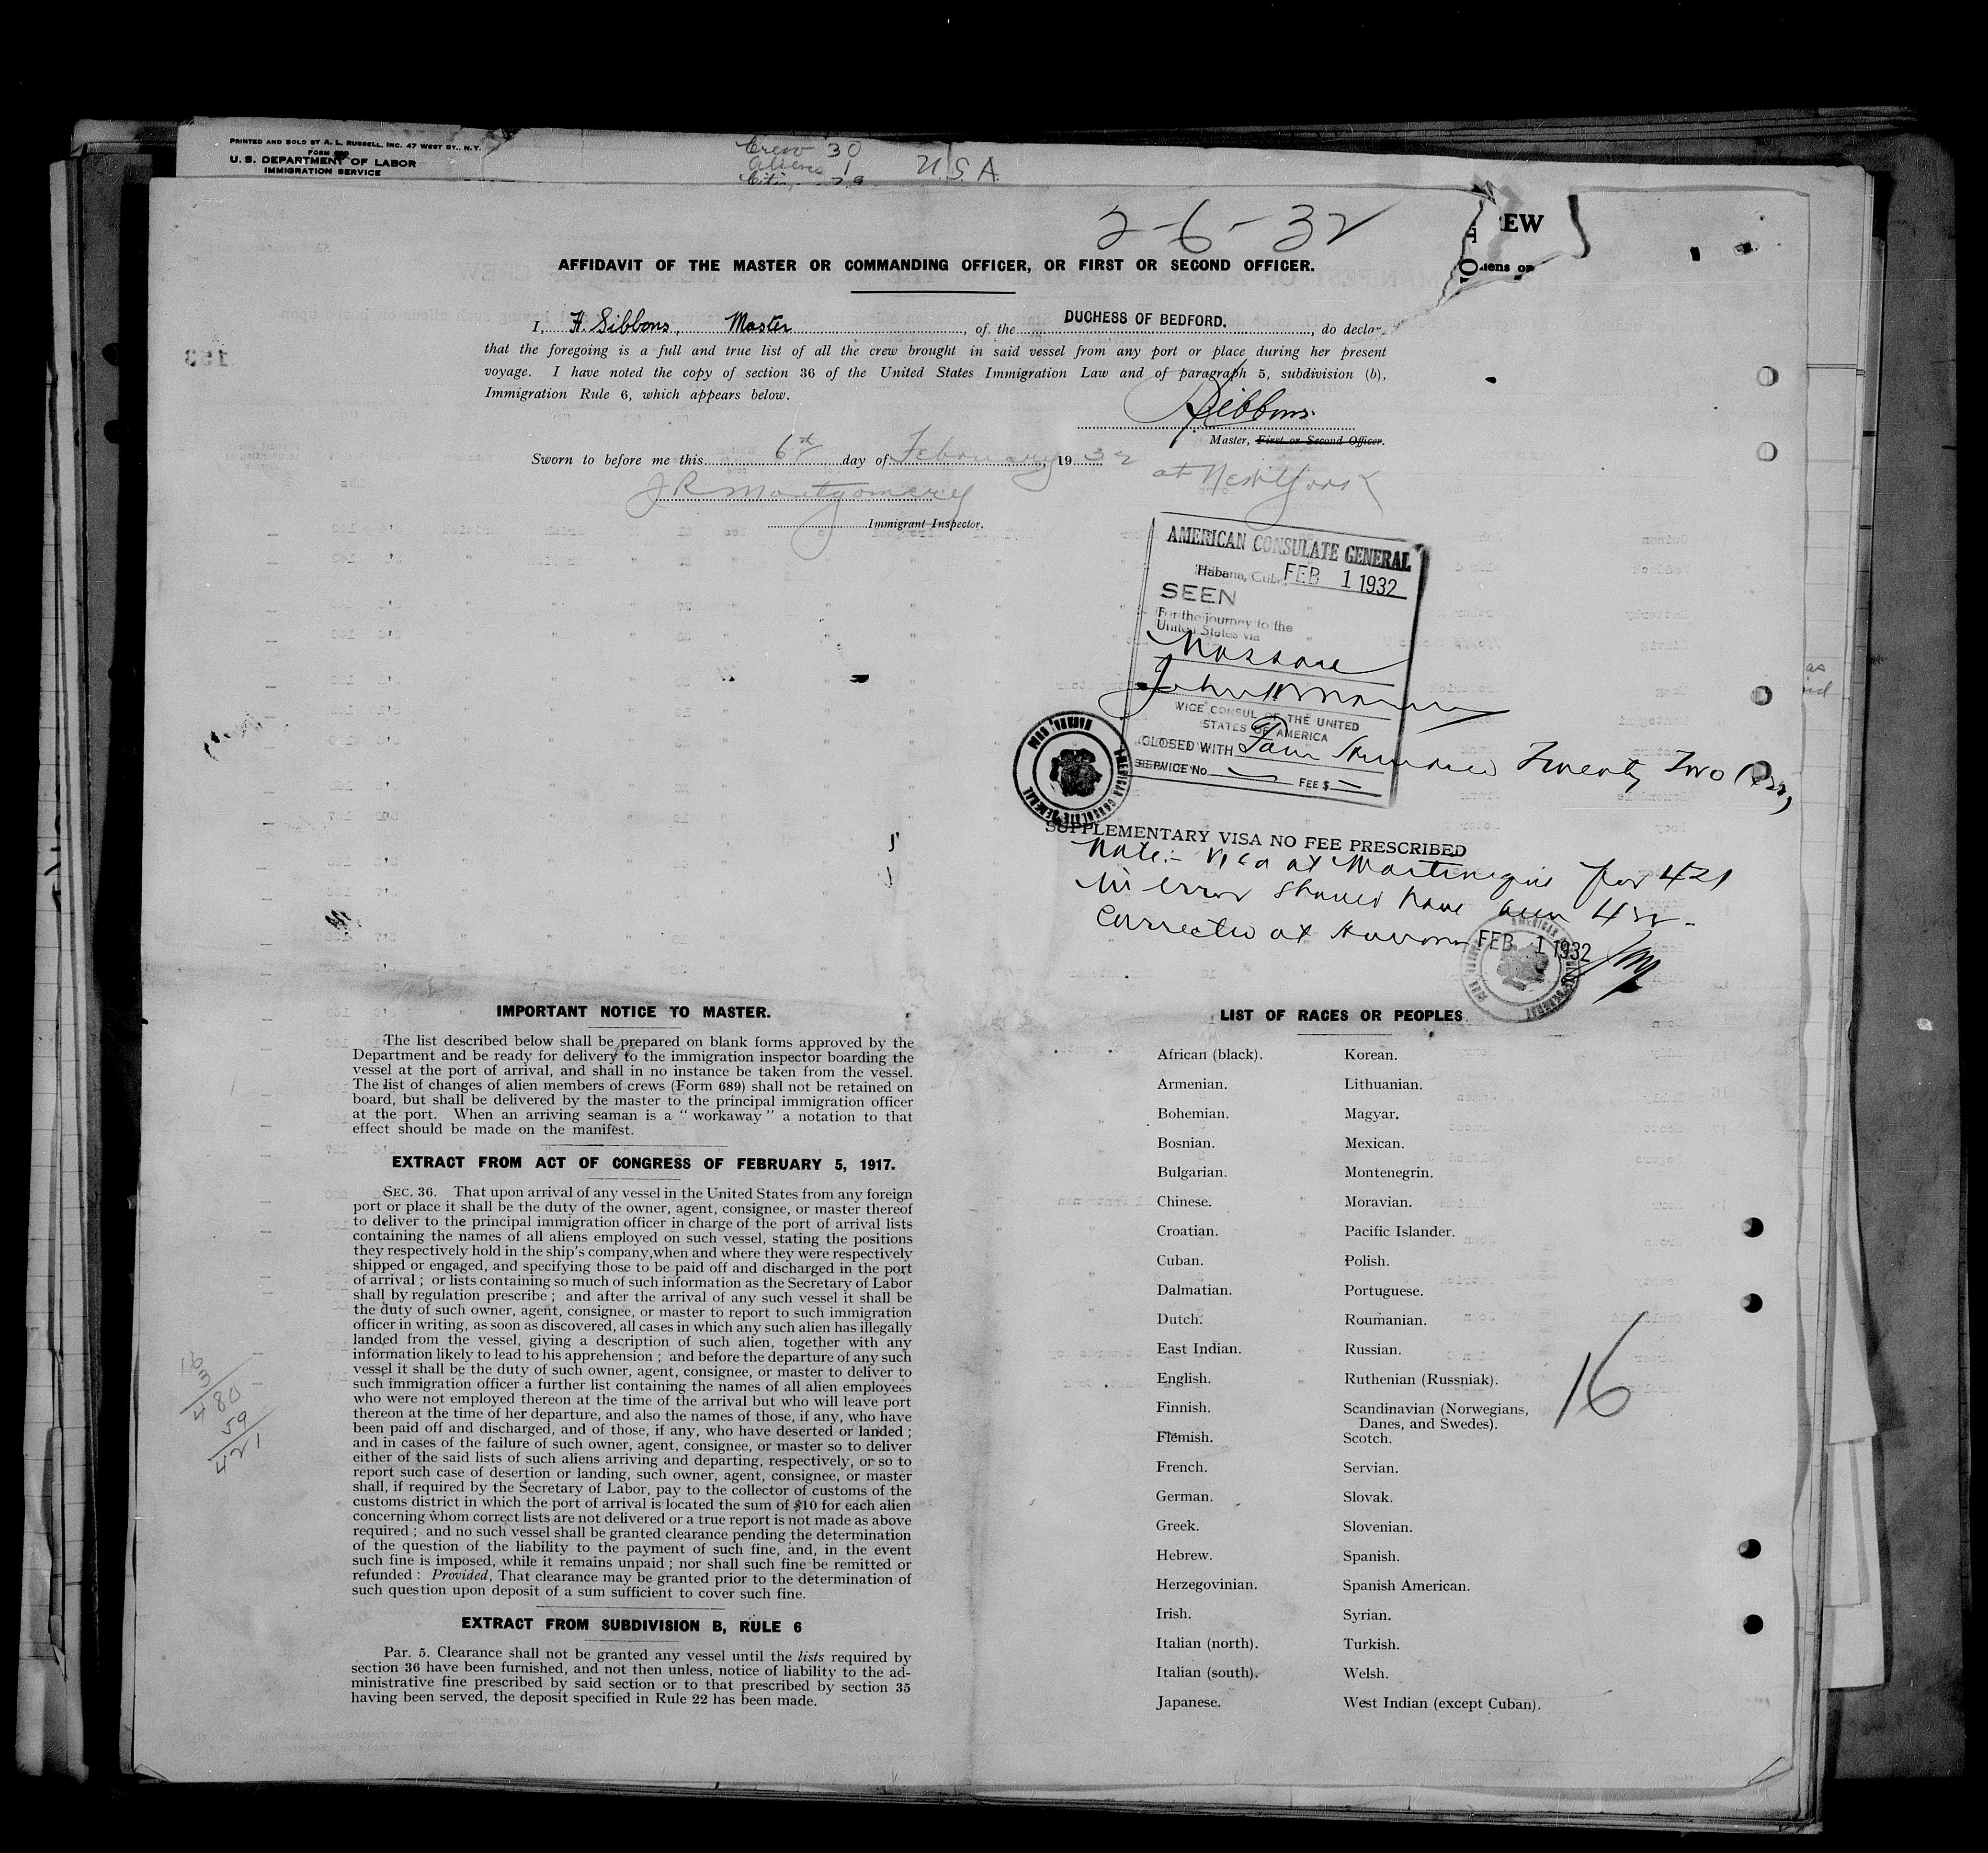 PRINTED AND SOLD BY A. L. RUSSELL, INC. 47 WEST ST., N.Y.
FORM
U. S. DEPARTMENT OF LABOR
IMMIGRATION SERVICE
Crew 30
Aliens 1
U.S.A.
2-6-32
EW
iens on
AFFIDAVIT OF THE MASTER OR COMMANDING OFFICER, OR FIRST OR SECOND OFFICER.
I, H. Sibbons, Master, of the DUCHESS OF BEDFORD., do declar
that the foregoing is a full and true list of all the crew brought in said vessel from any port or place during her present
voyage. I have noted the copy of section 36 of the United States Immigration Law and of paragraph 5, subdivision (b),
Immigration Rule 6, which appears below.
Sibbons.
Master, First or Second Officer.
Sworn to before me this 6th day of February, 1932 at New York
J R Montgomery
Immigrant Inspector.
AMERICAN CONSULATE GENERAL
Habana, Cuba FEB 1 1932
SEEN
For the journey to the
United States via
Nassau
VICE CONSUL OF THE UNITED
STATES OF AMERICA
CLOSED WITH Four Hundred Twenty Two
SERVICE No. FEE $
SUPPLEMENTARY VISA NO FEE PRESCRIBED
Note:- Visa at Martinique for 421
in error should have been 422-
Corrected at Havana FEB 1 1932
IMPORTANT NOTICE TO MASTER.
The list described below shall be prepared on blank forms approved by the
Department and be ready for delivery to the immigration inspector boarding the
vessel at the port of arrival, and shall in no instance be taken from the vessel.
The list of changes of alien members of crews (Form 689) shall not be retained on
board, but shall be delivered by the master to the principal immigration officer
at the port. When an arriving seaman is a " workaway " a notation to that
effect should be made on the manifest.
EXTRACT FROM ACT OF CONGRESS OF FEBRUARY 5, 1917.
SEC. 36. That upon arrival of any vessel in the United States from any foreign
port or place it shall be the duty of the owner, agent, consignee, or master thereof
to deliver to the principal immigration officer in charge of the port of arrival lists
containing the names of all aliens employed on such vessel, stating the positions
they respectively hold in the ship's company,when and where they were respectively
shipped or engaged, and specifying those to be paid off and discharged in the port
of arrival ; or lists containing so much of such information as the Secretary of Labor
shall by regulation prescribe ; and after the arrival of any such vessel it shall be
the duty of such owner, agent, consignee, or master to report to such immigration
officer in writing, as soon as discovered, all cases in which any such alien has illegally
landed from the vessel, giving a description of such alien, together with any
information likely to lead to his apprehension ; and before the departure of any such
vessel it shall be the duty of such owner, agent, consignee, or master to deliver to
such immigration officer a further list containing the names of all alien employees
who were not employed thereon at the time of the arrival but who will leave port
thereon at the time of her departure, and also the names of those, if any, who have
been paid off and discharged, and of those, if any, who have deserted or landed ;
and in cases of the failure of such owner, agent, consignee, or master so to deliver
either of the said lists of such aliens arriving and departing, respectively, or so to
report such case of desertion or landing, such owner, agent, consignee, or master
shall, if required by the Secretary of Labor, pay to the collector of customs of the
customs district in which the port of arrival is located the sum of $10 for each alien
concerning whom correct lists are not delivered or a true report is not made as above
required ; and no such vessel shall be granted clearance pending the determination
of the question of the liability to the payment of such fine, and, in the event
such fine is imposed, while it remains unpaid ; nor shall such fine be remitted or
refunded : Provided, That clearance may be granted prior to the determination of
such question upon deposit of a sum sufficient to cover such fine.
EXTRACT FROM SUBDIVISION B, RULE 6
Par. 5. Clearance shall not be granted any vessel until the lists required by
section 36 have been furnished, and not then unless, notice of liability to the ad-
ministrative fine prescribed by said section or to that prescribed by section 35
having been served, the deposit specified in Rule 22 has been made.
16
3
480
59
421
LIST OF RACES OR PEOPLES
African (black). Korean.
Armenian. Lithuanian.
Bohemian. Magyar.
Bosnian. Mexican.
Bulgarian. Montenegrin.
Chinese. Moravian.
Croatian. Pacific Islander.
Cuban. Polish.
Dalmatian. Portuguese.
Dutch. Roumanian.
East Indian. Russian.
English. Ruthenian (Russniak).
Finnish. Scandinavian (Norwegians,
Danes, and Swedes).
Flemish. Scotch.
French. Servian.
German. Slovak.
Greek. Slovenian.
Hebrew. Spanish.
Herzegovinian. Spanish American.
Irish. Syrian.
Italian (north). Turkish.
Italian (south). Welsh.
Japanese. West Indian (except Cuban).
16